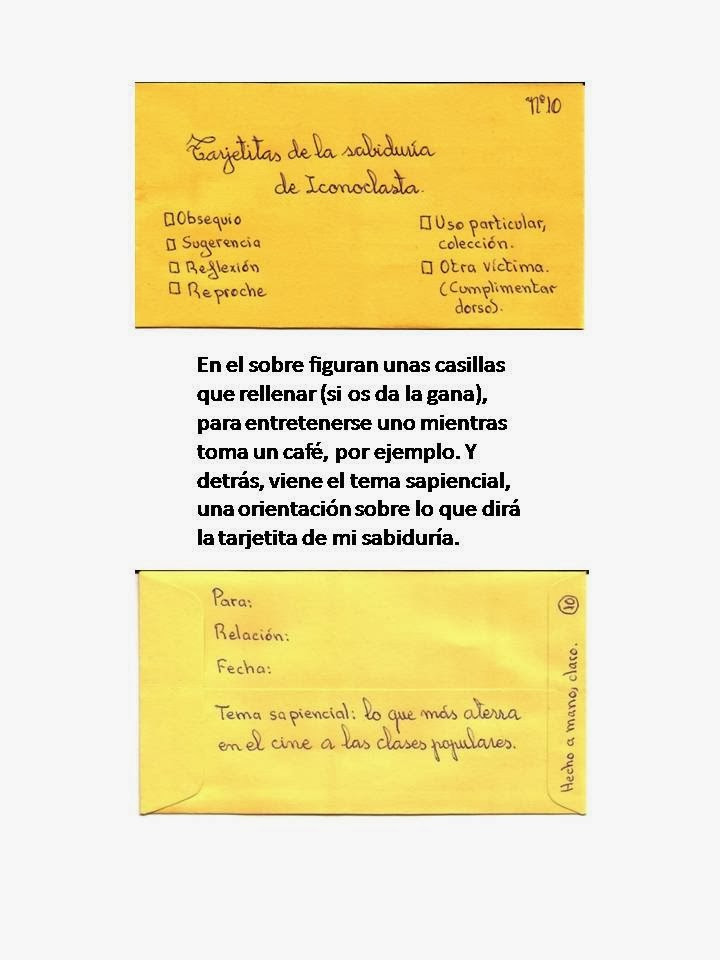 Nº10
Tarjetitas de la sabiduría
de Iconoclasta.
□ Obsequio
□ Sugerencia
□ Reflexión
□ Reproche
□ Uso particular,
colección.
□ Otra víctima.
(Cumplimentar
dorso).
En el sobre figuran unas casillas
que rellenar (si os da la gana),
para entretenerse uno mientras
toma un café, por ejemplo. Y
detrás, viene el tema sapiencial,
una orientación sobre lo que dirá
la tarjetita de mi sabiduría.
Para:
Relación:
Fecha:
Tema sapiencial: lo que más aterra
en el cine a las clases populares.
Hecho a mano, claro.
10